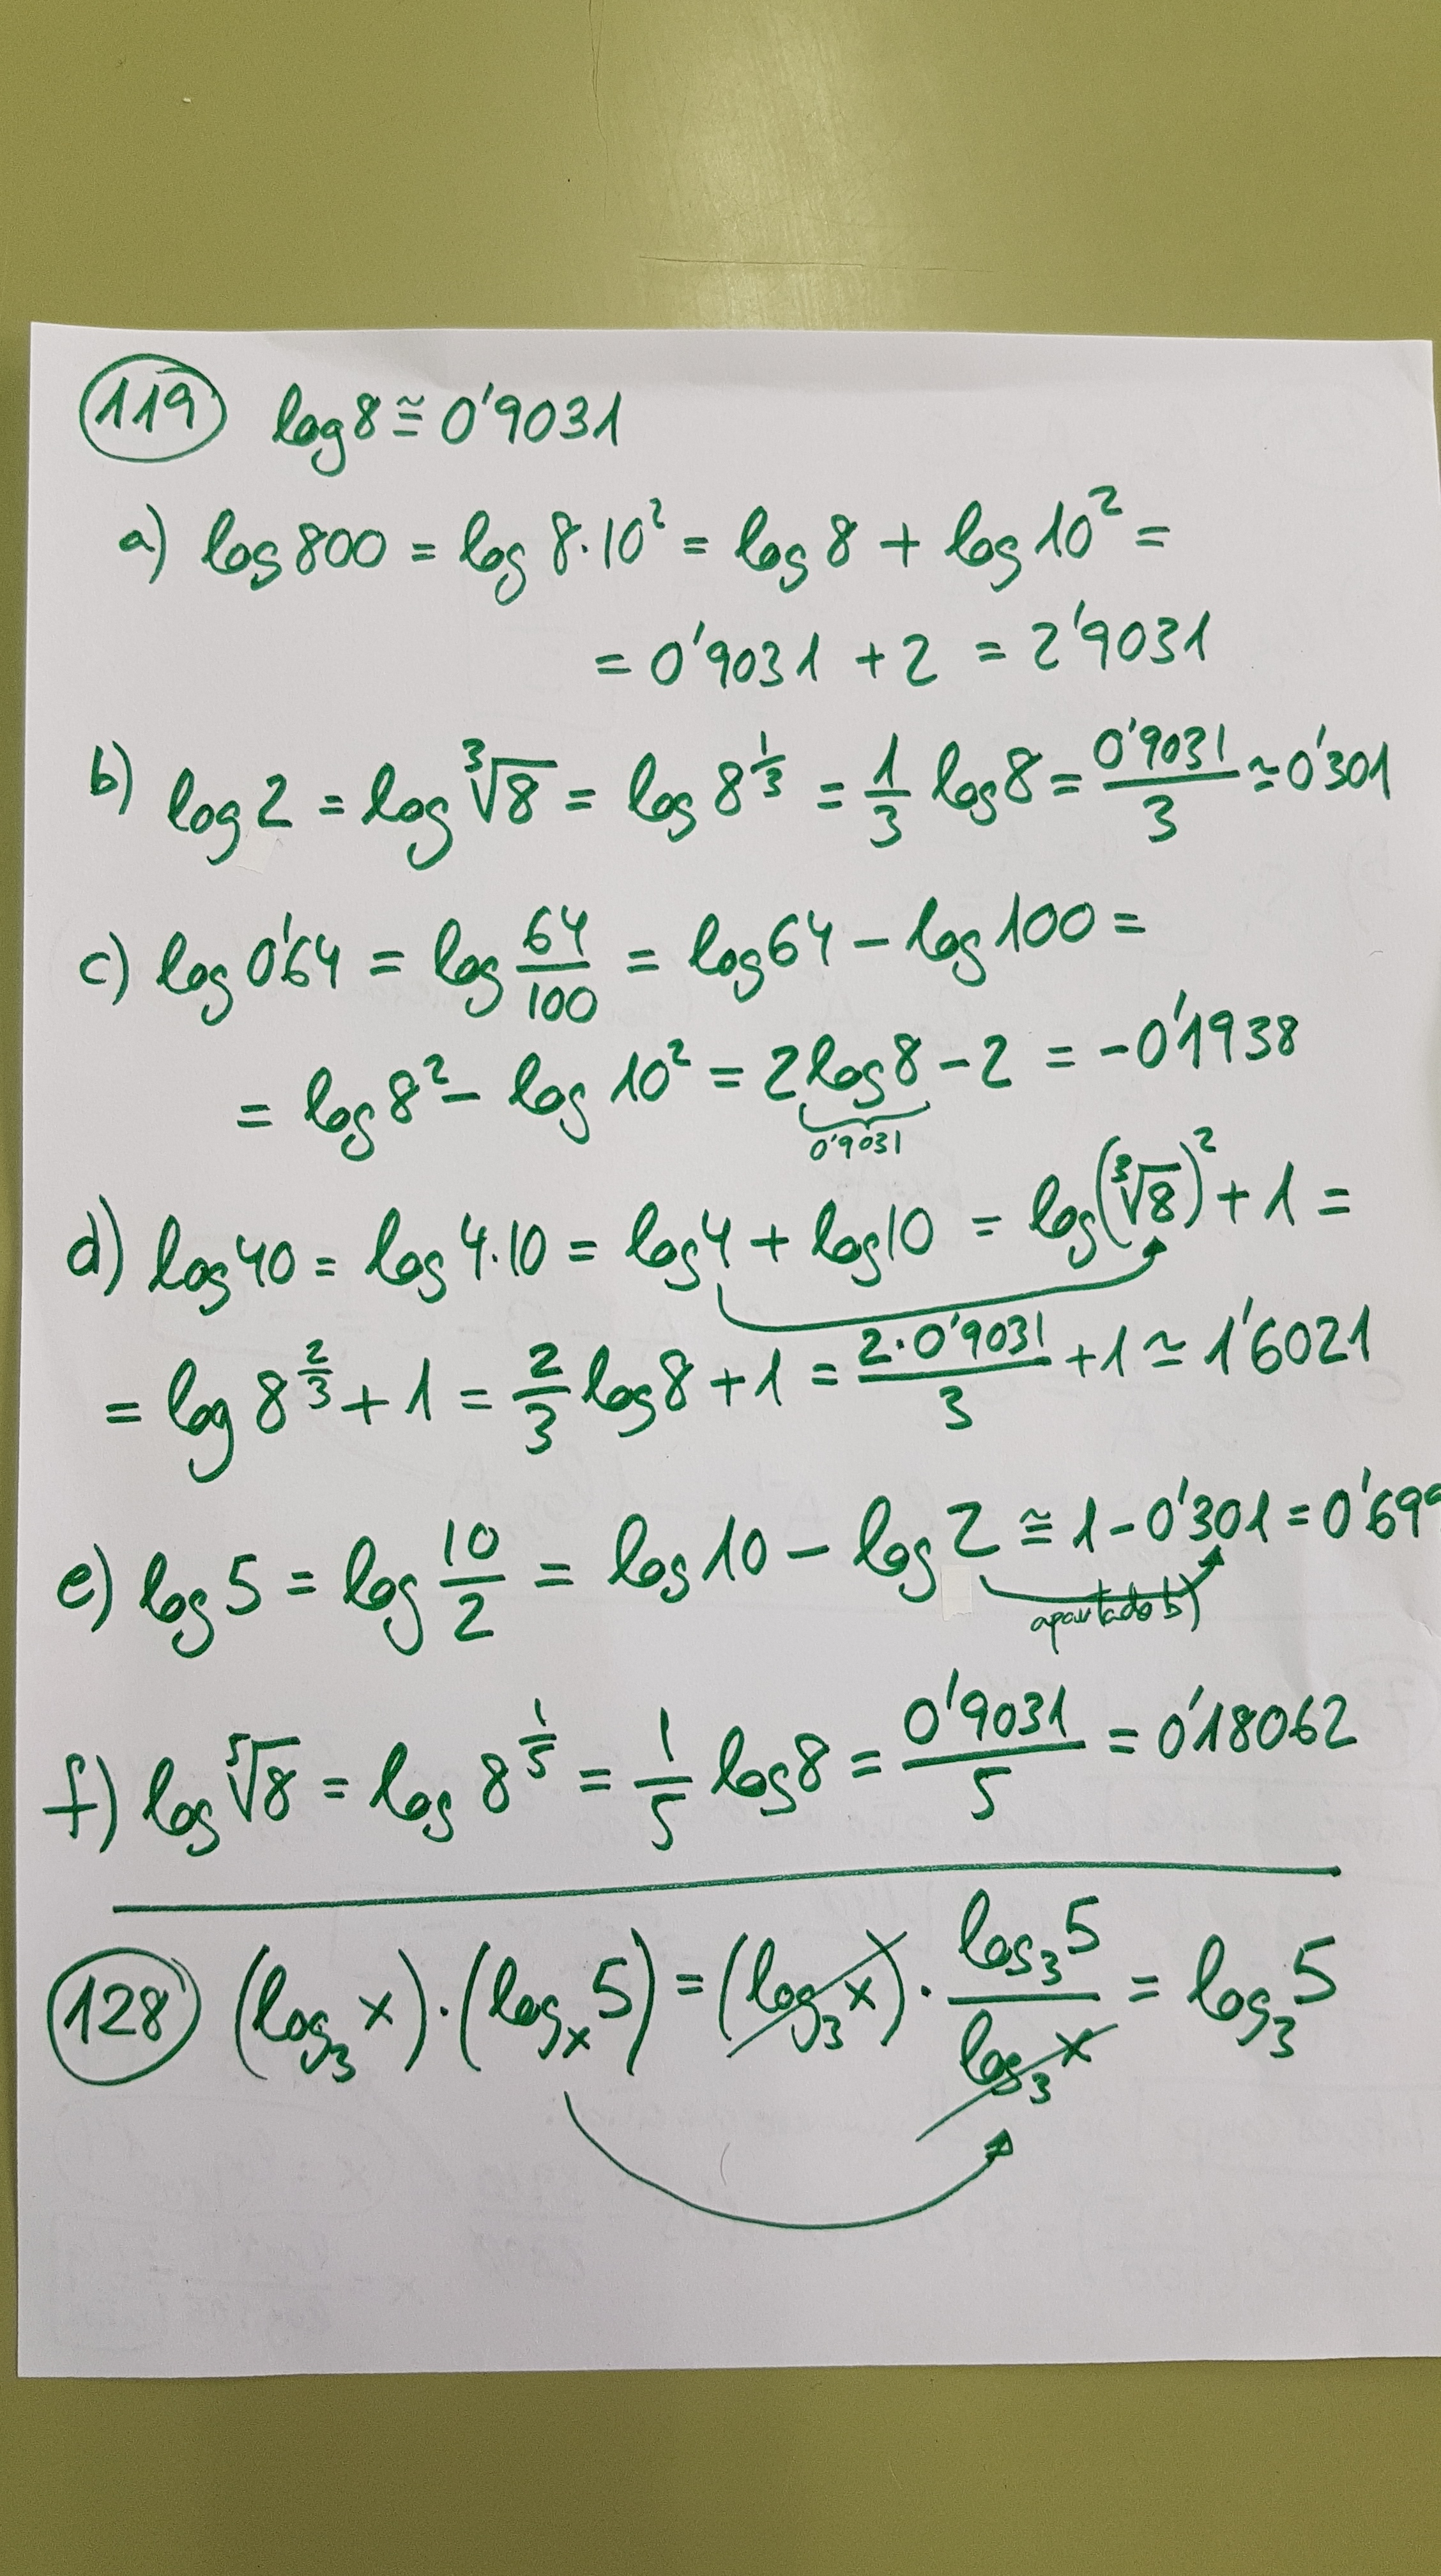 119 log 8 ≅ 0'9031
a) log 800 = log 8·10² = log 8 + log 10² =
= 0'9031 + 2 = 2'9031
b) log 2 = log ∛8 = log 8^(1/3) = 1/3 log 8 = 0'9031/3 ≃ 0'301
c) log 0'64 = log 64/100 = log 64 − log 100 =
= log 8² − log 10² = 2 log 8 − 2 = −0'1938
0'9031
d) log 40 = log 4·10 = log 4 + log 10 = log (∛8)² + 1 =
= log 8^(2/3) + 1 = 2/3 log 8 + 1 = 2·0'9031/3 + 1 ≃ 1'6021
e) log 5 = log 10/2 = log 10 − log 2 ≅ 1 − 0'301 = 0'699
apartado b)
f) log ⁵√8 = log 8^(1/5) = 1/5 log 8 = 0'9031/5 = 0'18062
128 (log₃ x)·(logₓ 5) = (log₃ x)· log₃ 5/log₃ x = log₃ 5